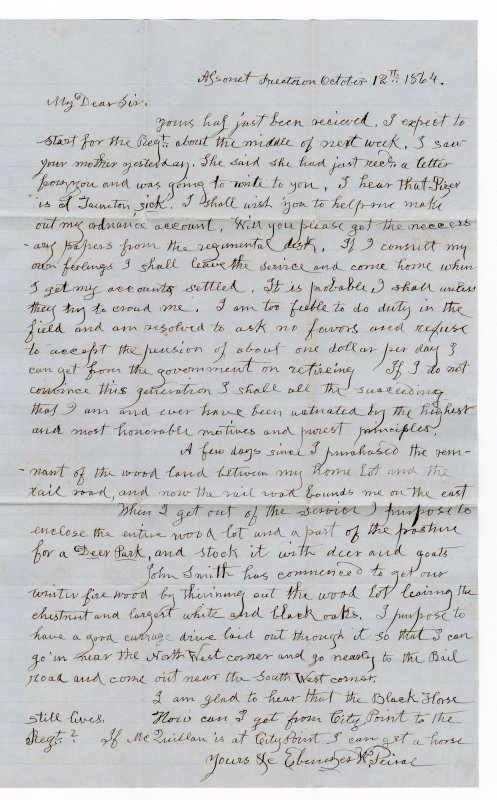 Assonet Freetown October 12th 1864.
My Dear Sir.
Yours has just been recieved. I expect to
start for the Regt. about the middle of next week. I saw
your mother yesterday. She said she had just recd a letter
from you and was going to write to you. I hear that
is at Taunton, sick. I shall wish you to help me make
out my ordnance account. Will you please get the necess
-ary papers from the regimental desk. If I consult my
own feelings I shall leave the service and come home when
I get my accounts settled. It is probable I shall unless
they try to crowd me. I am too feeble to do duty in the
field and am resolved to ask no favors and refuse
to accept the pension of about one dollar per day I
can get from the government on retireing If I do not
convince this generation I shall all the succeeding
that I am and ever have been actuated by the highest
and most honorable motives and purest principles.
A few days since I purchased the rem-
-nant of the wood land between my Home Lot and the
rail road, and now the rail road bounds me on the east
When I get out of the service I purpose to
enclose the entire wood lot and a part of the pasture
for a Deer Park, and stock it with deer and goats
John Smith has commenced to get our
winter fire wood by thinning out the wood lot leaving the
chestnut and largest white and black oaks. I purpose to
have a good carriage drive laid out through it so that I can
go in near the North West corner and go nearly to the Rail
road and come out near the South West corner.
I am glad to hear that the Black Horse
still lives. How can I get from City Point to the
Regt? If McQuillan is at City Point I can get a horse
Yours &c Ebenezer W. Peirce